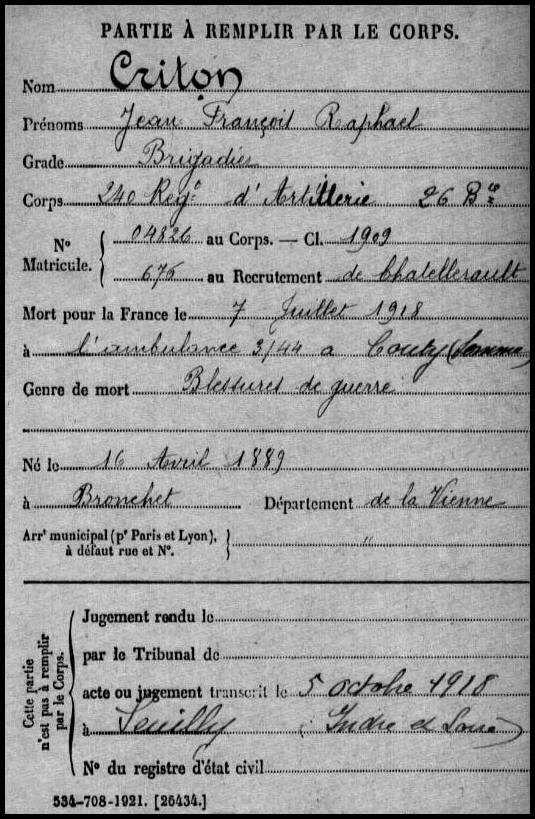 PARTIE À REMPLIR PAR LE CORPS.
Nom Criton
Prénoms Jean François Raphael
Grade Brigadier
Corps 240 Regt d'Artillerie 26 Bie
No Matricule. { 04826 au Corps. — Cl. 1909
675 au Recrutement de Chatellerault
Mort pour la France le 7 Juillet 1918
à l'ambulance 3/44 a Conty (Somme)
Genre de mort Blessures de guerre
Né le 16 Avril 1889
à Bronchet Département de la Vienne
Arrt municipal (pr Paris et Lyon), à défaut rue et No. } "
Cette partie n'est pas à remplir par le Corps.
Jugement rendu le
par le Tribunal de
acte ou jugement transcrit le 5 octobre 1918
à Seuilly (Indre et Loire)
No du registre d'état civil
534-708-1921. [26434.]